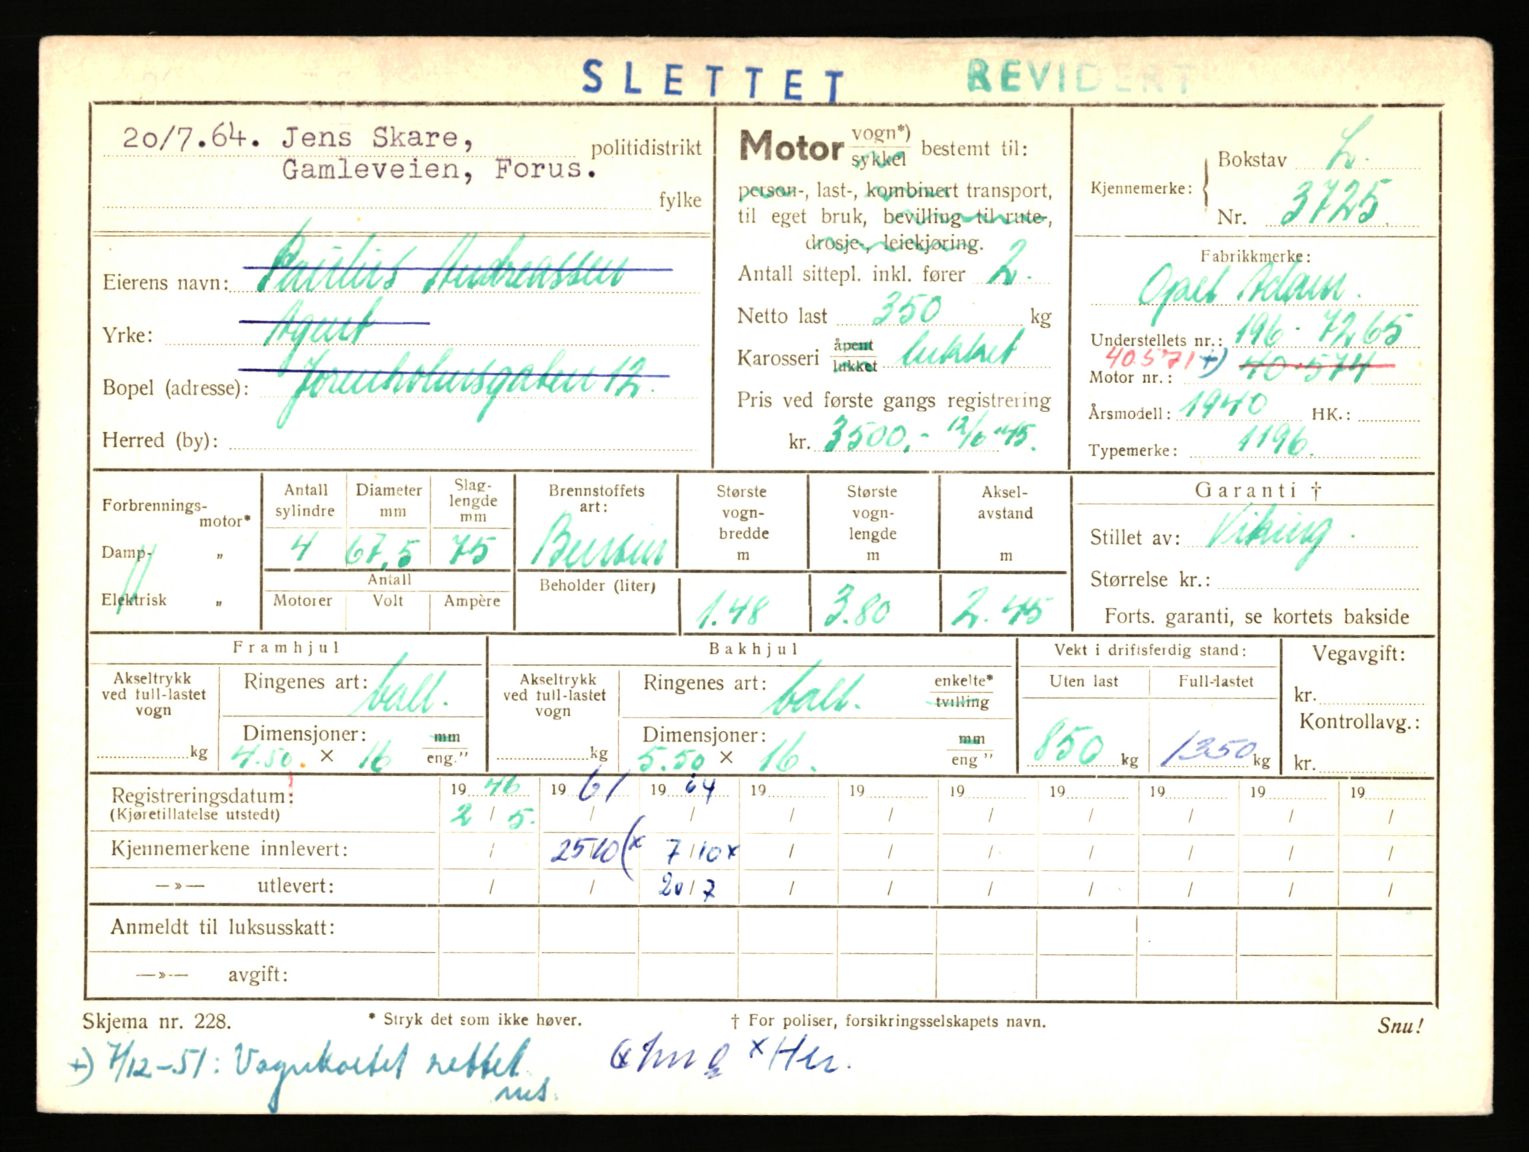 SLETTET REVIDERT
20/7.64. Jens Skare, politidistrikt
Gamleveien, Forus.
fylke
Eierens navn: Paulus Andreassen
Yrke: Agent
Bopel (adresse): Jorenholmsgaten 12.
Herred (by):
Motor vogn*) sykkel bestemt til:
person-, last-, kombinert transport,
til eget bruk, bevilling til rute-,
drosje-, leiekjøring.
Antall sittepl. inkl. fører 2.
Netto last 350 kg
Karosseri åpent lukket lukket
Pris ved første gangs registrering
kr. 3500,- 12/6-45.
Kjennemerke: Bokstav L.
Nr. 3725.
Fabrikkmerke:
Opel Adam.
Understellets nr.: 196-7265
40571 +)
Motor nr.: 40-574
Årsmodell: 1940 HK.:
Typemerke: 1196.
Forbrennings-motor*
Damp- „
Elektrisk „
Antall sylindre 4
Diameter mm 67,5
Slag-lengde mm 75
Antall
Motorer Volt Ampère
Brennstoffets art: Bensin
Beholder (liter)
Største vogn-bredde m 1.48
Største vogn-lengde m 3.80
Aksel-avstand m 2.45
Garanti †
Stillet av: Viking.
Størrelse kr.:
Forts. garanti, se kortets bakside
Framhjul
Akseltrykk ved full-lastet vogn kg
Ringenes art: ball.
Dimensjoner: 4.50. × 16 mm eng.”
Bakhjul
Akseltrykk ved full-lastet vogn kg
Ringenes art: ball. enkelte* tvilling
Dimensjoner: 5.50 × 16. mm eng ”
Vekt i driftsferdig stand:
Uten last 850 kg
Full-lastet 1350 kg
Vegavgift:
kr.
Kontrollavg.:
kr.
Registreringsdatum: 19 46 19 61 19 64 19 19 19 19 19 19 19
(Kjøretillatelse utstedt) 2 / 5. / / / / / / / / /
Kjennemerkene innlevert: / 25/10 (x 7/10 x / / / / / / /
—»— utlevert: / / 20/7 / / / / / / /
Anmeldt til luksusskatt:
—»— avgift:
Skjema nr. 228. * Stryk det som ikke høver. † For poliser, forsikringsselskapets navn. Snu!
+) 7/12-51: Vognkortet rettet.